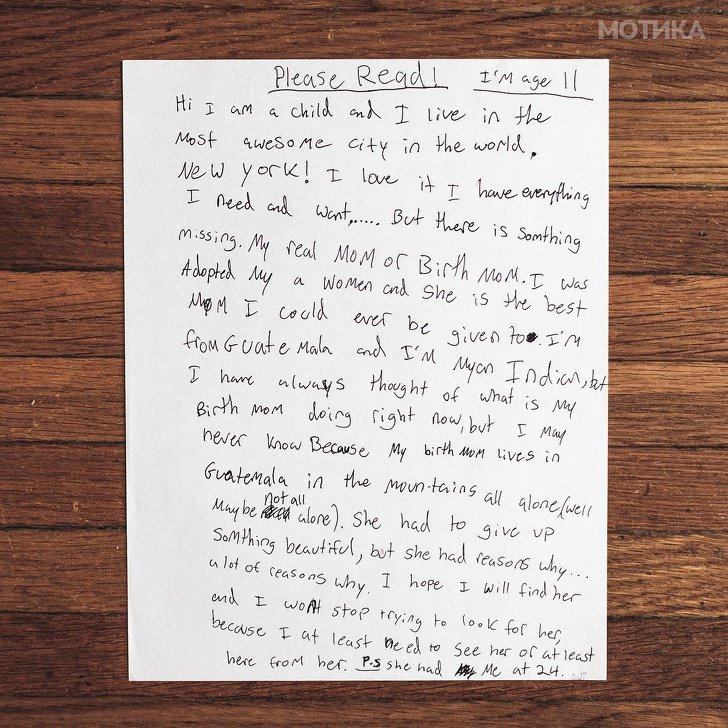 МОТИКА
Please Read! I'M age 11
Hi I am a child and I live in the
Most awesome city in the world,
New york! I love it I have everything
I need and want,..... But there is Somthing
missing. My real Mom or Birth Mom. I was
Adopted My a women and She is the best
Mom I could ever be given to. I'm
from Guatemala and I'M Myan Indian, but
I have always thought of what is My
Birth mom doing right now, but I May
never know Because My birth Mom Lives in
Guatemala in the mountains all alone (well
Maybe not all alone). She had to give up
Somthing beautiful, but she had reasons why...
a lot of reasons why. I hope I will find her
and I wont stop trying to look for her,
because I at least need to see her or at least
here from her. P.S she had Me at 24.